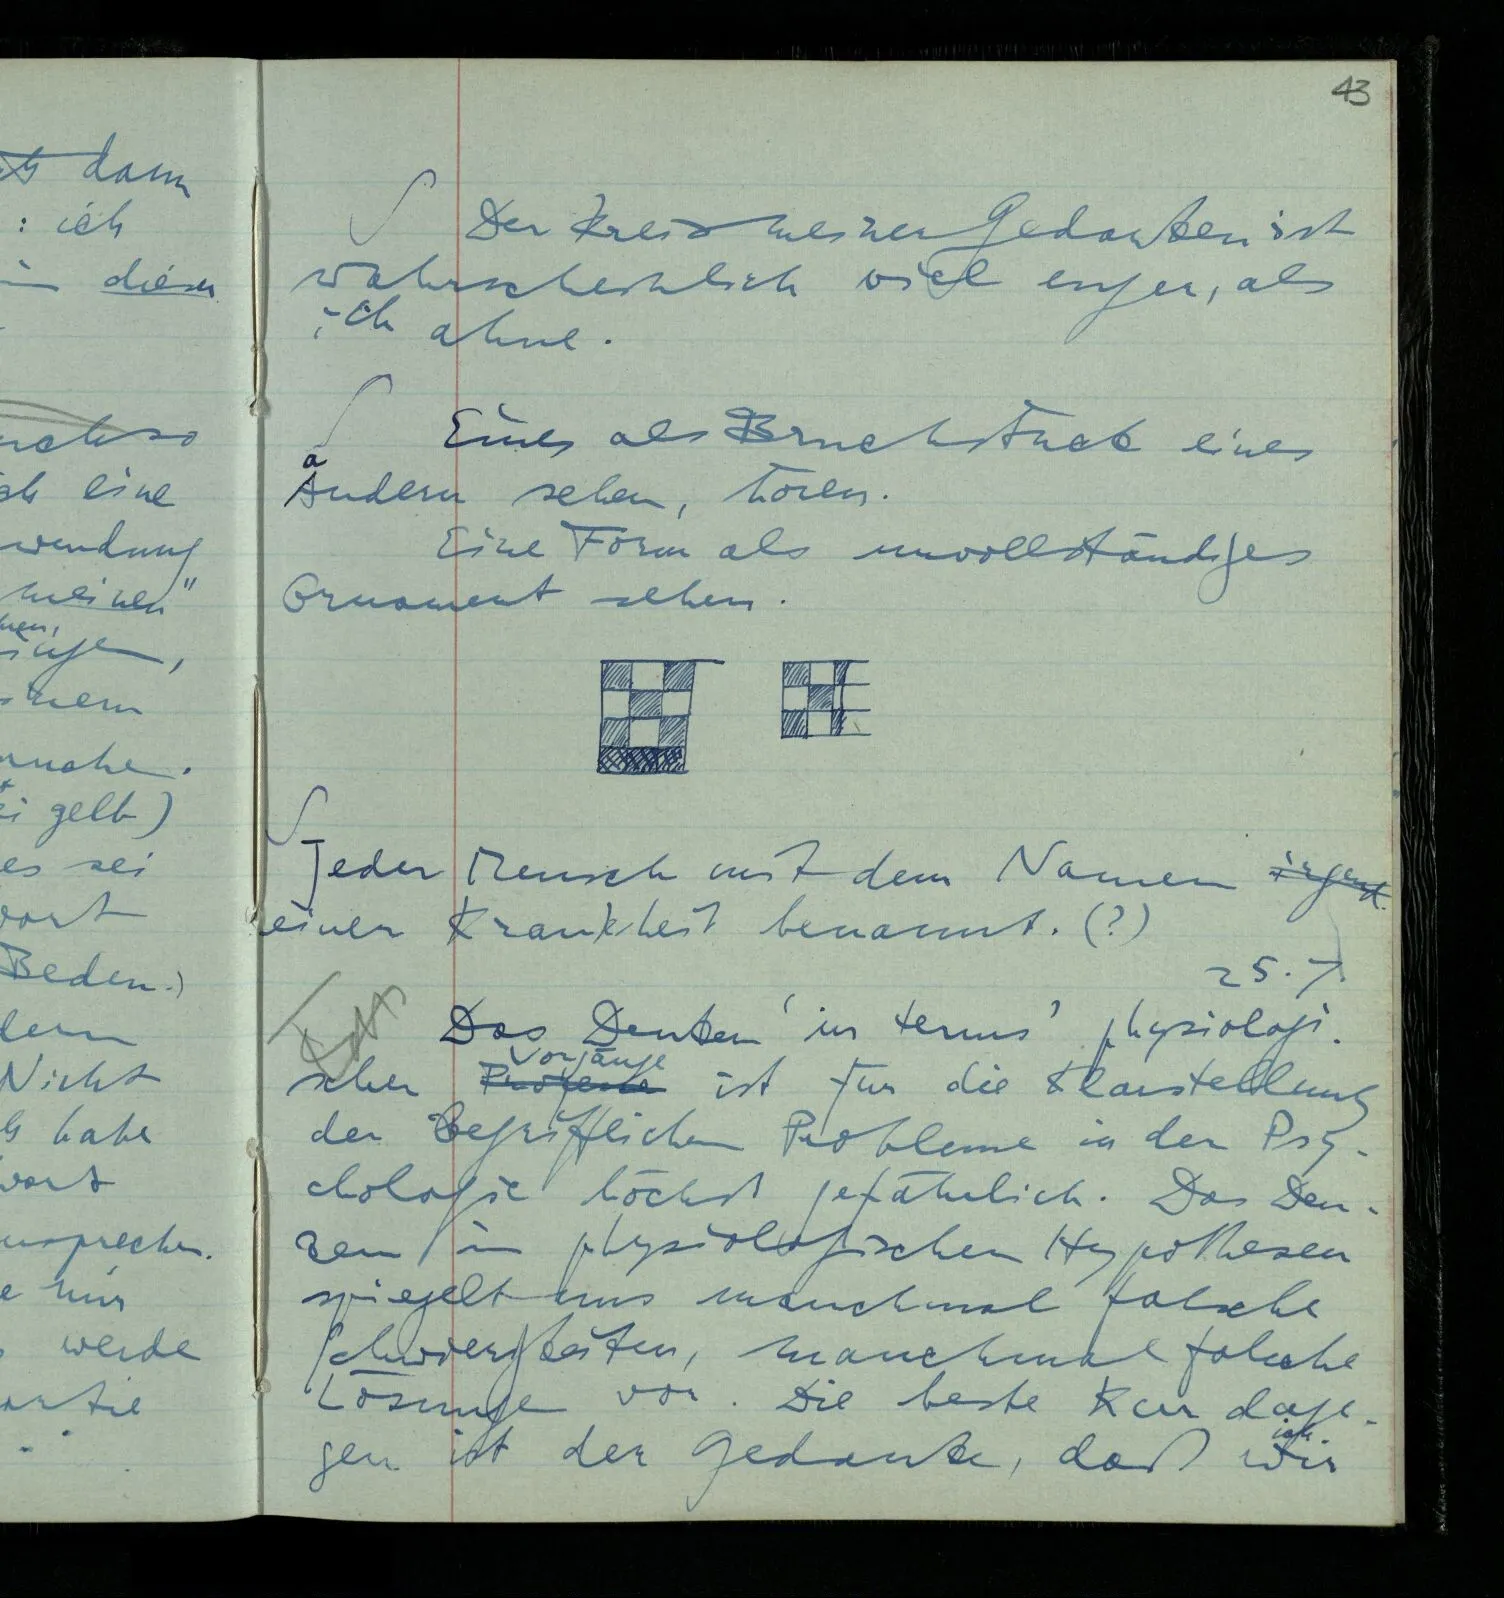 43
dann
: ich
dieser
eine
wendung
meinen"
gelb)
es sei
Beden.)
Nicht
habe
werde
Der Kreis meiner Gedanken ist
wahrscheinlich viel enger, als
ich ahne.
Eines als Bruchstück eines
a
Andern sehen, hören.
Eine Form als unvollständiges
Ornament sehen.
Jeder Mensch mit dem Namen irgend
einer Krankheit benannt. (?)
25.7.
Das Denken 'in terms' physiologi-
Vorgänge
scher Prozesse ist für die Klarstellung
der begrifflichen Probleme in der Psy-
chologie höchst gefährlich. Das Den-
ken in physiologischen Hypothesen
spiegelt uns manchmal falsche
Schwierigkeiten, manchmal falsche
Lösungen vor. Die beste Kur dage-
ich
gen ist der Gedanke, daß wir